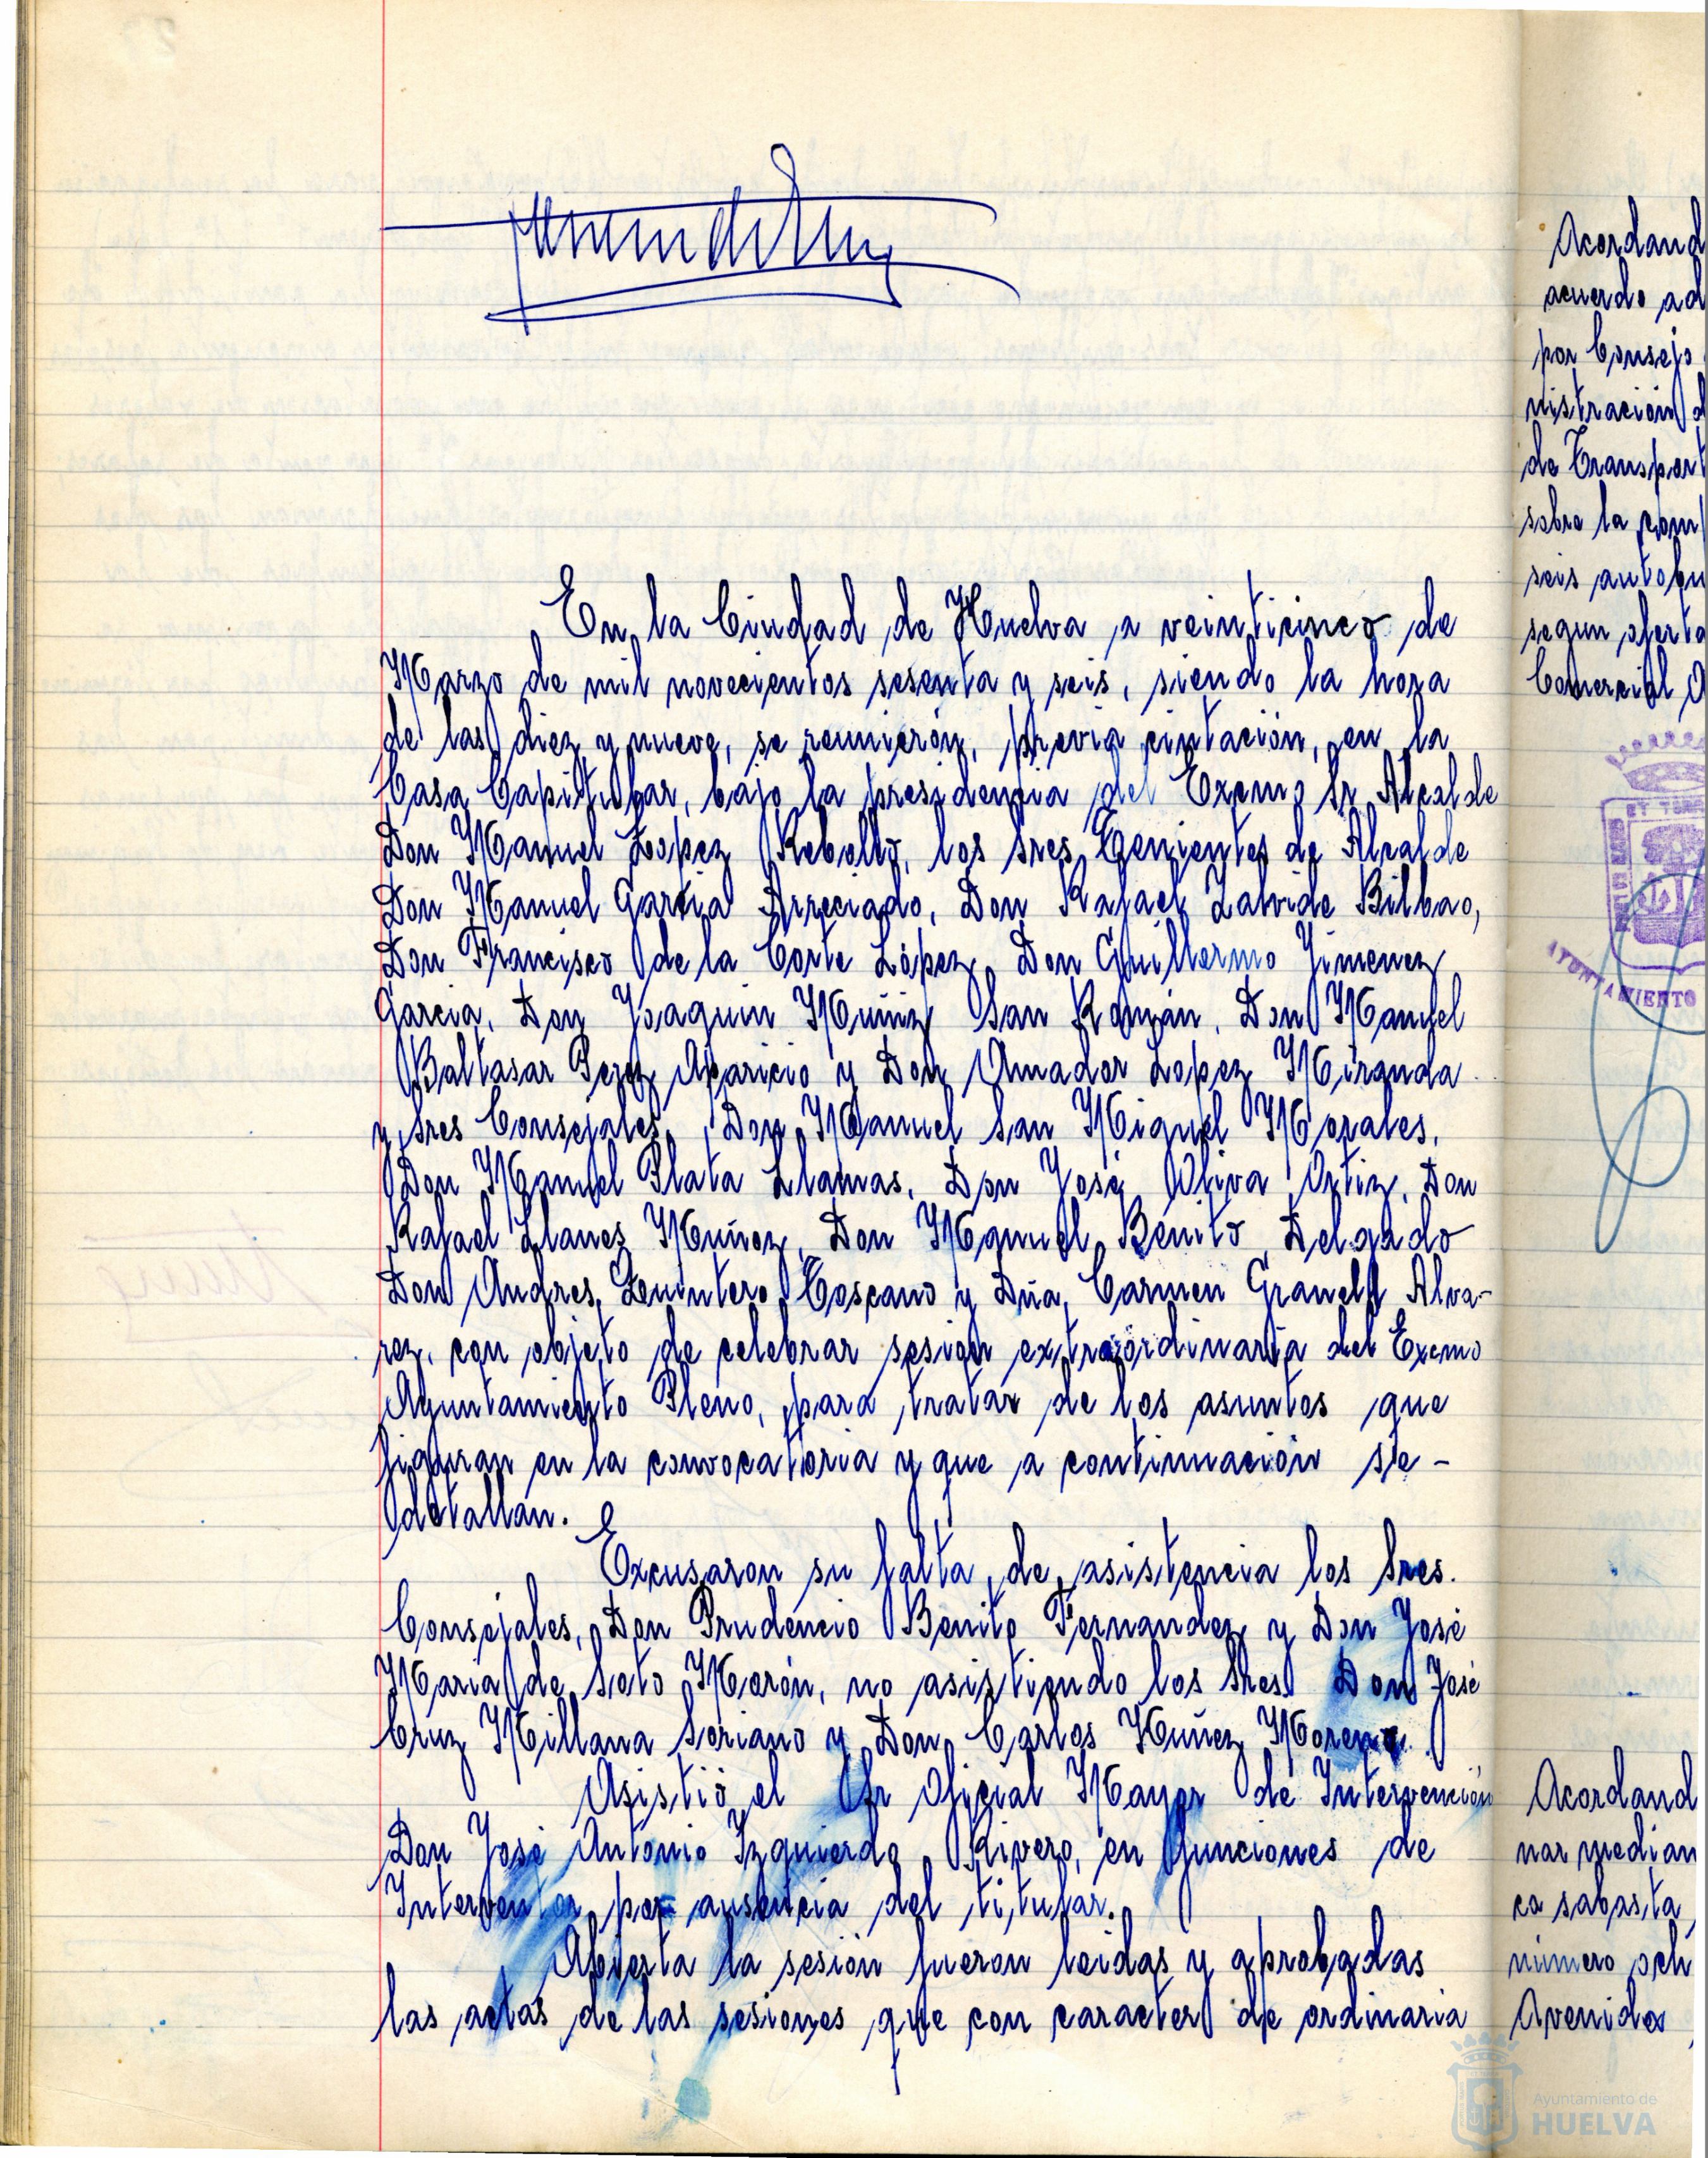 En la Ciudad de Huelva a veinticinco de
Marzo de mil novecientos sesenta y seis, siendo la hora
de las diez y nueve, se reunierón, previa citación, en la
Casa Capitular, bajo la presidencia del Excmo Sr Alcalde
Don Manuel López Rebollo, los sres Tenientes de Alcalde
Don Manuel García Arreciado, Don Rafael Zalvide Bilbao,
Don Francisco de la Corte López, Don Guillermo Jimenez
Garcia, Don Joaquin Muñiz San Román, Don Manuel
Baltasar Perez Aparicio y Don Amador Lopez Miranda
y sres Consejales, Don Manuel San Miguel Morales,
Don Manuel Plata Llamas, Don José Oliva Ortiz, Don
Rafael Llanes Muñoz, Don Manuel Benito Delgado
Don Andres Quintero Toscano y Dña, Carmen Granell Alva-
rez, con objeto de celebrar sesion extraordinaria del Excmo
Ayuntamiento Pleno, para tratar de los asuntos que
figuran en la convocatoria y que a continuación se -
detallan.
Excusaron su falta de asistencia los Sres.
Consejales, Don Prudencio Benito Fernandez y Don José
Maria de Soto Morón, no asistiendo los Sres Don José
Cruz Millana Soriano y Don Carlos Nuñez Moreno.
Asistió el Sr Oficial Mayor de Intervención
Don José Antonio Izquierdo Rivero, en funciones de
Interventor por ausencia del titular.
Abierta la sesión fueron leidas y aprobadas
las actas de las sesiones que con caracter de ordinaria
Acordand
acuerdo ad
por Consejo
nistración d
de Transport
sobre la com
seis autobu
segun oferta
Comercial
AYUNTAMIENTO
Acordand
nar median
ca sabasta
número och
Avenida
Ayuntamiento de
HUELVA